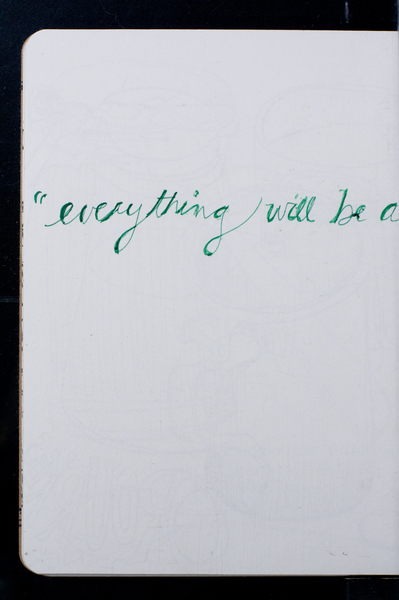 “everything will be a